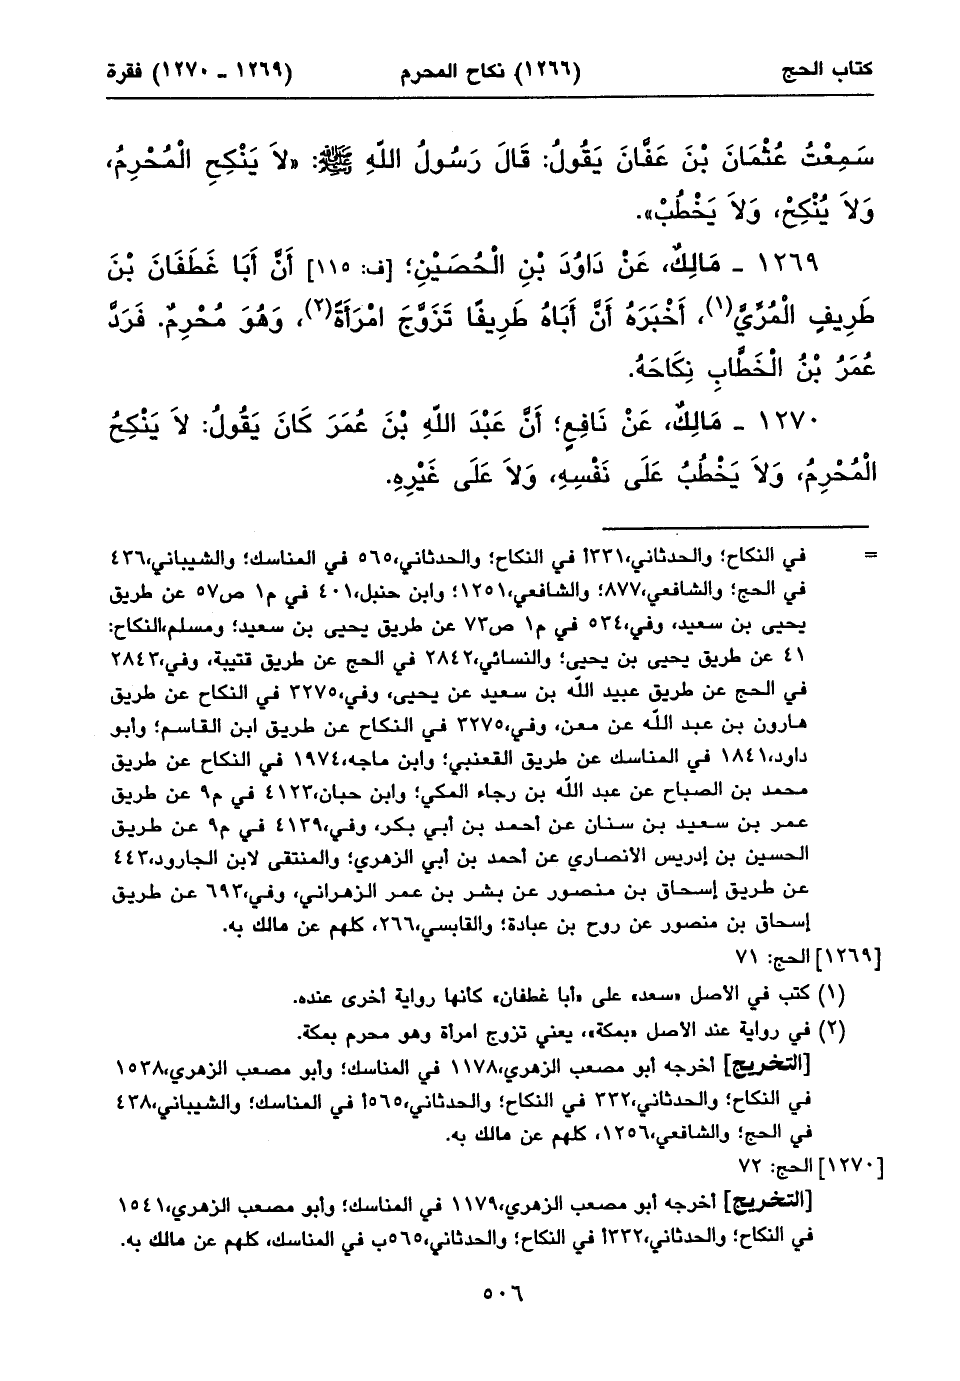 كتاب الحج (١٢٦٦) نكاح المحرم (١٢٦٩ ـ ١٢٧٠) فقرة
سَمِعْتُ عُثْمَانَ بْنَ عَفَّانَ يَقُولُ: قَالَ رَسُولُ اللَّهِ ﷺ: «لاَ يَنْكِحِ الْمُحْرِمُ،
وَلاَ يُنْكِحْ، وَلاَ يَخْطُبْ».
١٢٦٩ ـ مَالِكٌ، عَنْ دَاوُدَ بْنِ الْحُصَيْنِ؛ [ف: ١١٥] أَنَّ أَبَا غَطَفَانَ بْنَ
طَرِيفٍ الْمُرِّيَّ(١)، أَخْبَرَهُ أَنَّ أَبَاهُ طَرِيفًا تَزَوَّجَ امْرَأَةً(٢)، وَهُوَ مُحْرِمٌ. فَرَدَّ
عُمَرُ بْنُ الْخَطَّابِ نِكَاحَهُ.
١٢٧٠ ـ مَالِكٌ، عَنْ نَافِعٍ؛ أَنَّ عَبْدَ اللَّهِ بْنَ عُمَرَ كَانَ يَقُولُ: لاَ يَنْكِحُ
الْمُحْرِمُ، وَلاَ يَخْطُبُ عَلَى نَفْسِهِ، وَلاَ عَلَى غَيْرِهِ.
= في النكاح؛ والحدثاني،٣٣١أ في النكاح؛ والحدثاني،٥٦٥ في المناسك؛ والشيباني،٤٣٦
في الحج؛ والشافعي،٨٧٧؛ والشافعي،١٢٥١؛ وابن حنبل،٤٠١ في م١ ص٥٧ عن طريق
يحيى بن سعيد، وفي،٥٣٤ في م١ ص٧٣ عن طريق يحيى بن سعيد؛ ومسلم،النكاح:
٤١ عن طريق يحيى بن يحيى؛ والنسائي،٢٨٤٢ في الحج عن طريق قتيبة، وفي،٢٨٤٣
في الحج عن طريق عبيد الله بن سعيد عن يحيى، وفي،٣٢٧٥ في النكاح عن طريق
هارون بن عبد الله عن معن، وفي،٣٢٧٥ في النكاح عن طريق ابن القاسم؛ وأبو
داود،١٨٤١ في المناسك عن طريق القعنبي؛ وابن ماجه،١٩٧٤ في النكاح عن طريق
محمد بن الصباح عن عبد الله بن رجاء المكي؛ وابن حبان،٤١٢٣ في م٩ عن طريق
عمر بن سعيد بن سنان عن أحمد بن أبي بكر، وفي،٤١٣٩ في م٩ عن طريق
الحسين بن إدريس الانصاري عن أحمد بن أبي الزهري؛ والمنتقى لابن الجارود،٤٤٣
عن طريق إسحاق بن منصور عن بشر بن عمر الزهراني، وفي،٦٩٣ عن طريق
إسحاق بن منصور عن روح بن عبادة؛ والقابسي،٢٦٦، كلهم عن مالك به.
[١٢٦٩] الحج: ٧١
(١) كتب في الاصل «سعد» على «أبا غطفان» كأنها رواية أخرى عنده.
(٢) في رواية عند الاصل «بمكة»، يعني تزوج امرأة وهو محرم بمكة.
[التخريج] أخرجه أبو مصعب الزهري،١١٧٨ في المناسك؛ وأبو مصعب الزهري،١٥٣٨
في النكاح؛ والحدثاني،٣٣٢ في النكاح؛ والحدثاني،٥٦٥أ في المناسك؛ والشيباني،٤٣٨
في الحج؛ والشافعي،١٢٥٦، كلهم عن مالك به.
[١٢٧٠] الحج: ٧٢
[التخريج] أخرجه أبو مصعب الزهري،١١٧٩ في المناسك؛ وأبو مصعب الزهري،١٥٤١
في النكاح؛ والحدثاني،٣٣٢أ في النكاح؛ والحدثاني،٥٦٥ب في المناسك، كلهم عن مالك به.
٥٠٦